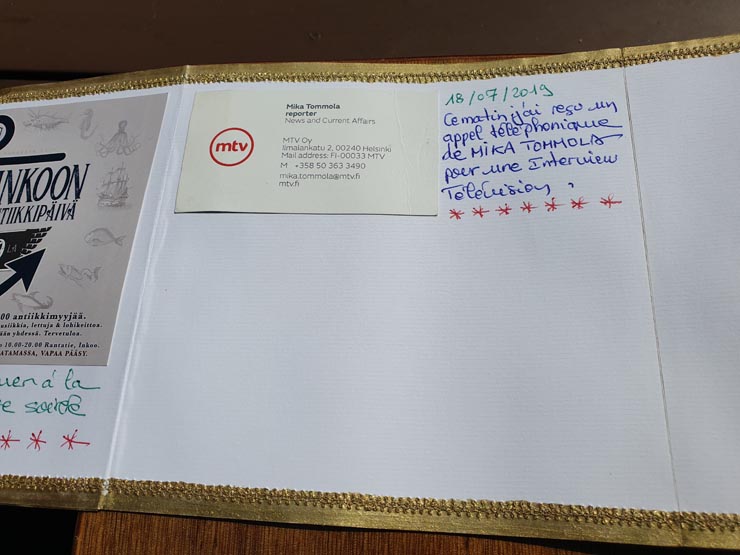 INKOON
NTIIKKIPÄIVÄ
LA
00 antiikkimyyjää.
usiikkia, lettuja & lohikeittoa.
ään yhdessä. Tervetuloa.
10.00-20.00 Rantatie, Inkoo.
ATAMASSA, VAPAA PÄÄSY.
à la
soirée
Mika Tommola
reporter
News and Current Affairs
mtv
MTV Oy
Ilmalankatu 2, 00240 Helsinki
Mail address: FI-00033 MTV
M +358 50 363 3490
mika.tommola@mtv.fi
mtv.fi
18/07/2019
Ce matin j'ai reçu un
appel téléphonique
de MIKA TOMMOLA
pour une Interview
Télévision,